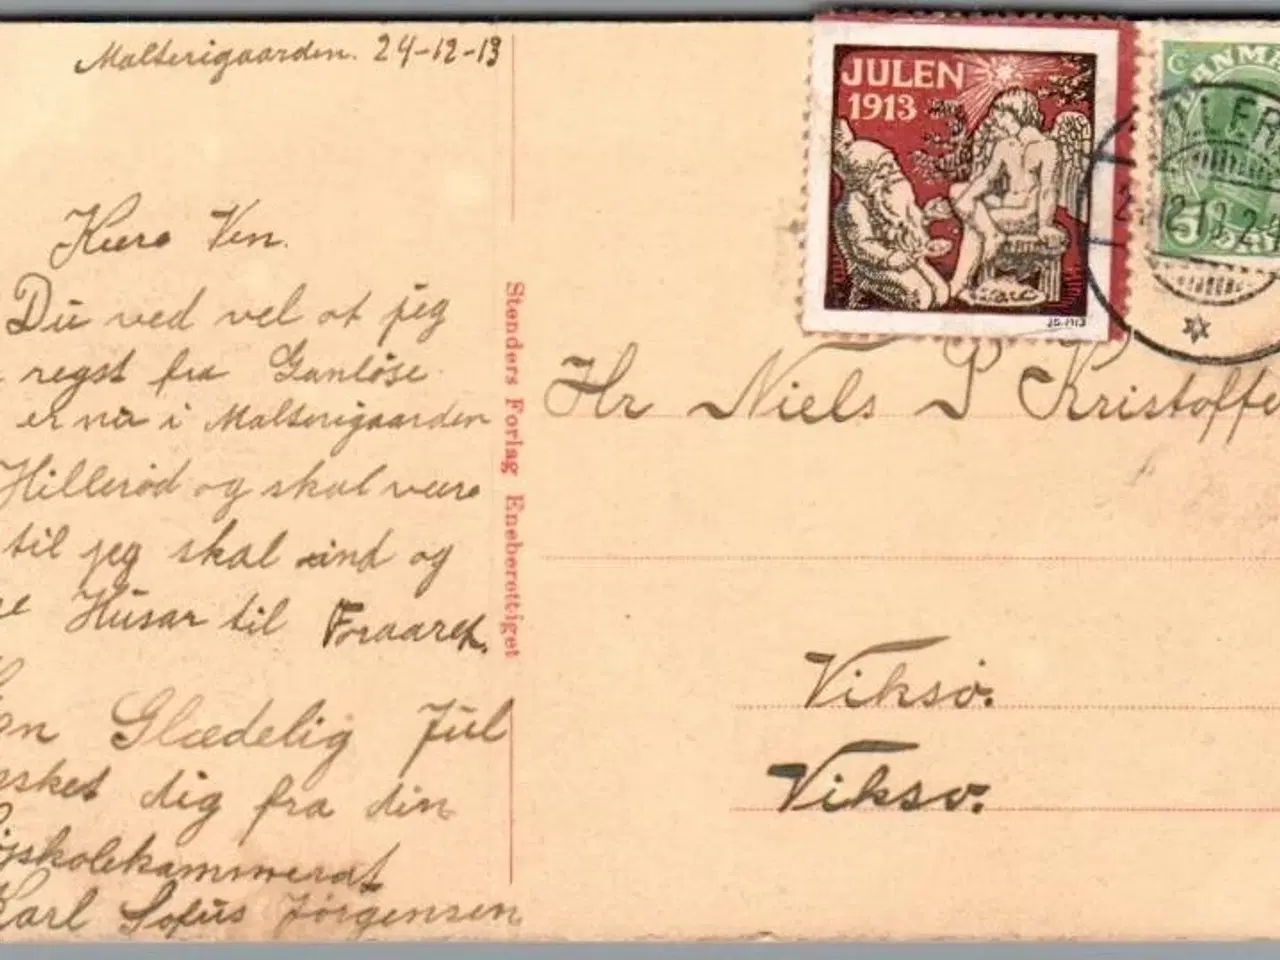 Malterigaarden. 24-12-13
Kære Ven.
Du ved vel at jeg
regst fra Ganløse.
er nu i Malterigaarden
Hillerød og skal være
til jeg skal ind og
Husar til Foraaret.
Glædelig Jul
dig fra din
jskolekammerat
Karl Sofus Jørgensen
Stenders Forlag Eneberettiget
JULEN
1913
DANMA
5
Hr Niels P Kristoffe
Viksø.
Viksø.